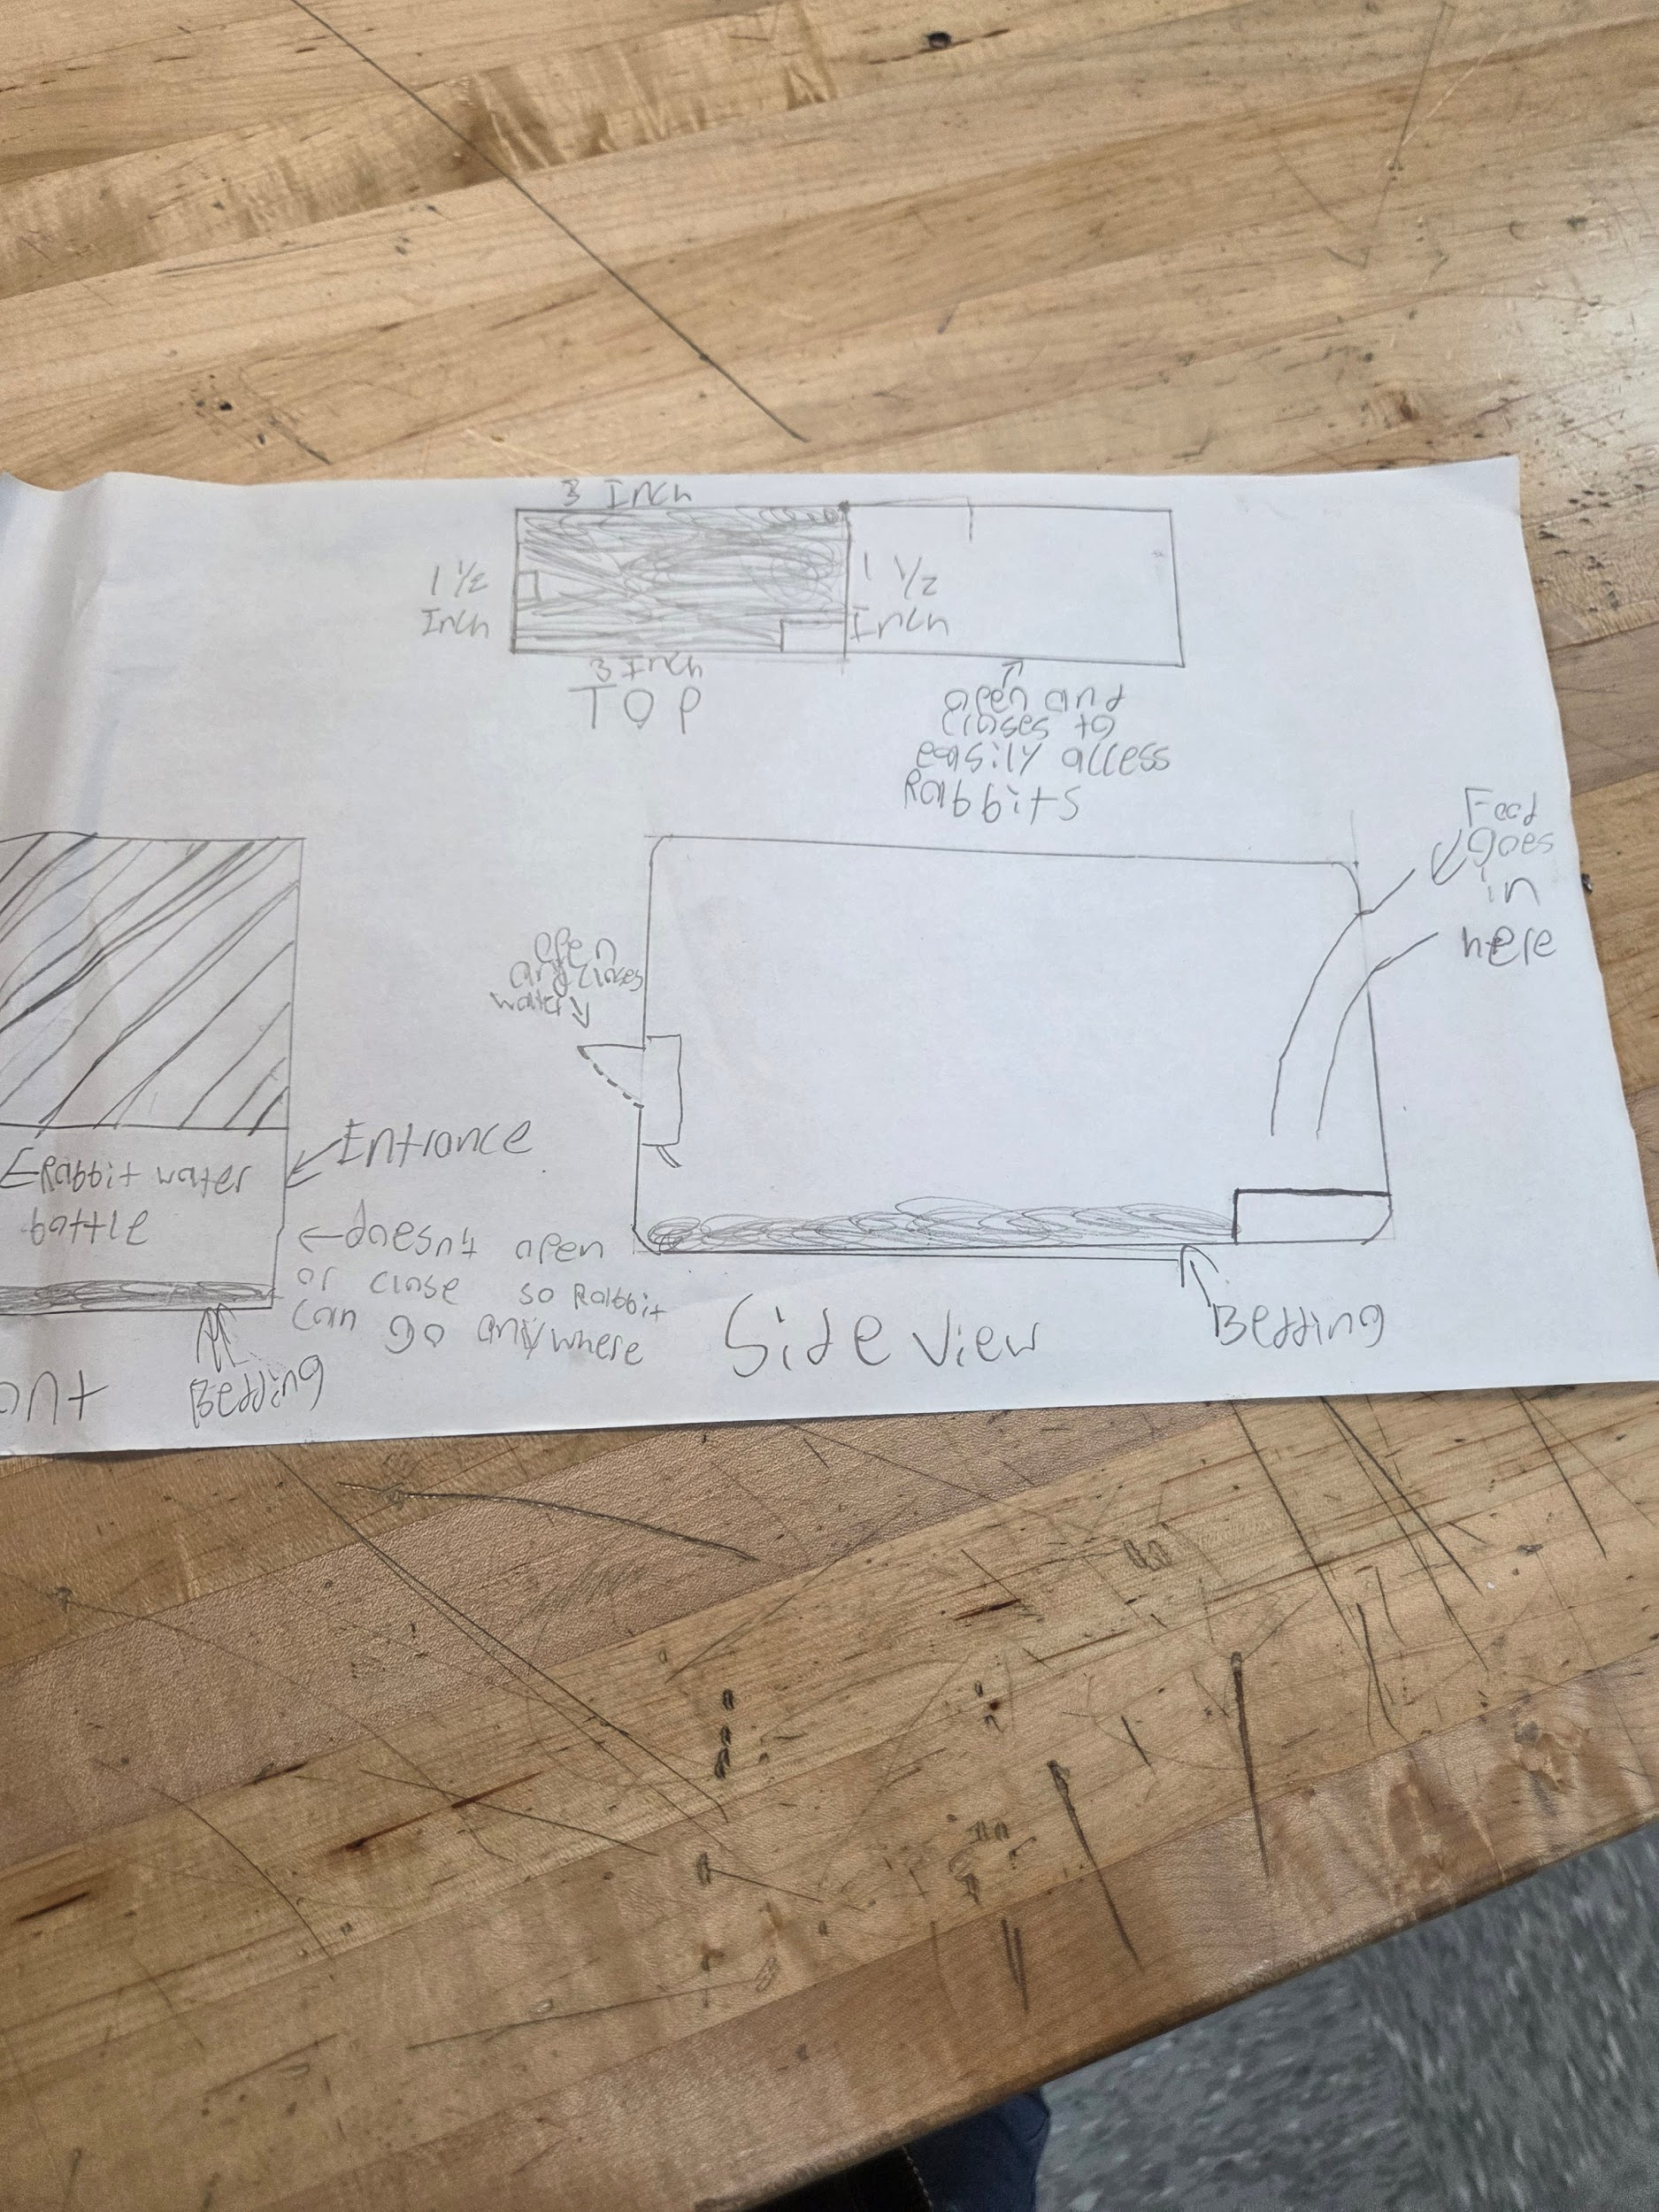 3 Inch
1 1/2
Inch
1 1/2
Inch
3 Inch
TOP
open and
closes to
easily access
Rabbits
Feed
goes
in
here
open
and closes
water
Entrance
Rabbit water
bottle
doesn't open
or close so Rabbit
can go anywhere
Bedding
ont
Side view
Bedding